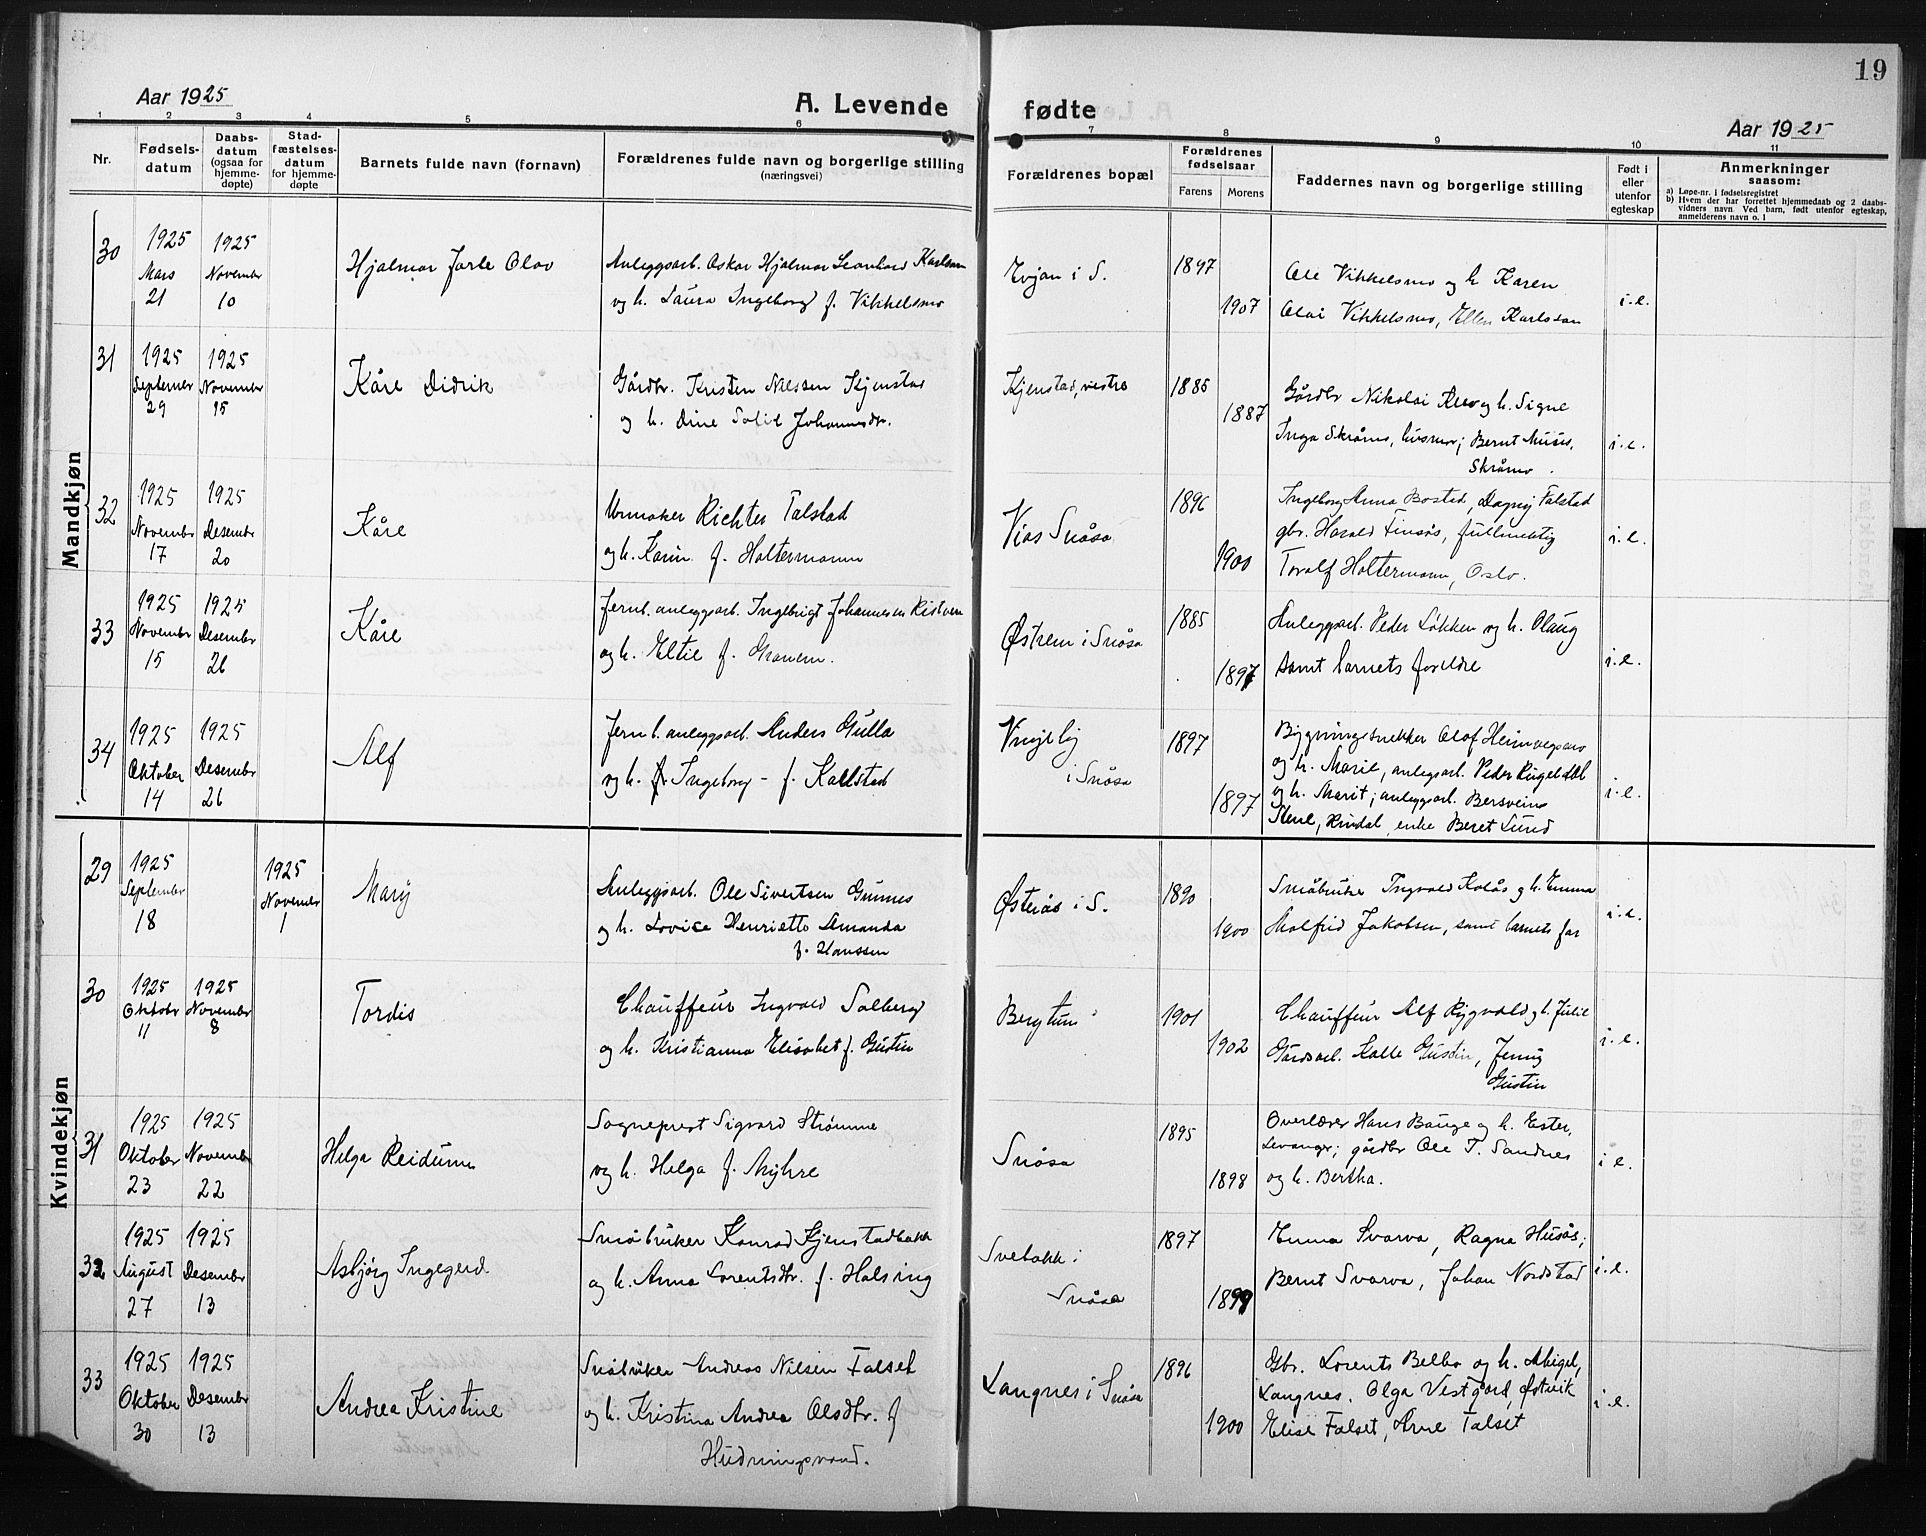 19
Aar 1925
A. Levende fødte
Aar 1925
1 2 3 4 5 6 7 8 9 10 11
Nr.
Fødsels-
datum
Daabs-
datum
(ogsaa for
hjemme-
døpte)
Stad-
fæstelses-
datum
for hjemme-
døpte
Barnets fulde navn (fornavn)
Forældrenes fulde navn og borgerlige stilling
(næringsvei)
Forældrenes bopæl
Forældrenes
fødselsaar
Farens Morens
Faddernes navn og borgerlige stilling
Født i
eller
utenfor
egteskap
Anmerkninger
saasom:
a) Løpe-nr. i fødselsregistret
b) Hvem der har forrettet hjemmedaab og 2 daabs-
vidners navn. Ved barn, født utenfor egteskap,
anmelderens navn o. l
Mandkjøn
30
1925
Mars
21
1925
November
10
Hjalmar Jarle Olov
Anleggsarb. Oskar Hjalmar Leonhard Karlson
og h. Laura Ingeborg f. Vikkelsmo
i S.
1897
1907
Ole Vikkelsmo og h. Karen
Olai Vikkelsmo, Ellen Karlsson
i.e.
31
1925
September
29
1925
November
15
Kåre Didrik
Gårdbr. Kristen Nilssen Kjenstad
og h. Dine Johannesdr.
Kjenstad, vestre
1885
1887
Gårdbr Nikolai og h. Signe
Inga Skråmo, husmor; Bernt
Skråmo.
i.e.
32
1925
November
17
1925
Desembr
20
Kåre
Urmaker Richter Talstad
og h. Karin f. Holtermann
Snåsa
1896
1900
Ingeborg Anna Bostad, Dagny Talstad
gbr. Harald Finsås, fullmektig
Toralf Holtermann, Oslo.
i.e.
33
1925
November
15
1925
Desembr
26
Kåre
Jernb. anleggsarb. Ingebrigt Johannesen
og h. Eltie f. Granem.
Østrem i Snåsa
1885
1897
Anleggsarb. Peder Løkken og h. Olaug
samt barnets foreldre
i.e.
34
1925
Oktober
14
1925
Desembr
26
Alf
Jernb. anleggsarb. Anders Gulla
og h. Ingeborg - f. Kallstad
i Snåsa
1897
1897
Bygningssnekker Olof
og h. Marie, anleggsarb. Peder
og h. Marit; anleggsarb. Bersvein
Stene, Rindal, enke Beret Lund
i.e.
Kvindekjøn
29
1925
September
18
1925
November
1
Mary
Anleggsarb. Ole Sivertsen Gunnes
og h. Lovise Henriette Amanda
f. Hanssen
Østerås i S.
1890
1900
Småbruker Ingvald Kolås og h. Emma
Malfrid Jakobsen, samt barnets far
i.e.
30
1925
Oktobr
11
1925
November
8
Tordis
Chauffeur Ingvald Solberg
og h. Kristianna Elisabet f. Gustin
Bergtun
1901
1902
Chauffeur Alf Rygvold og h. Julie
Gårdsarb. Kalle Gustin, Jenny
Gustin
i.e.
31
1925
Oktober
23
1925
November
22
Helga Reidunn
Sogneprest Sigvard Strømme
og h. Helga f. Myhre
Snåsa
1895
1898
Overlærer Hans Bauge og h. Ester,
Levanger; gårdbr Ole T. Sandnes
og h. Bertha.
i.e.
32
1925
August
27
1925
Desembr
13
Asbjørg Ingegerd
Småbruker Konrad Kjenstadbakk
og h. Anna Lorentsdtr. f. Halsing
Svebakk i
Snåsa
1897
1899
Emma Svarva, Ragna Husås;
Bernt Svarva, Johan Nordstad
i.e.
33
1925
Oktober
30
1925
Desembr
13
Andrea Kristine
Småbruker Andreas Nilsen Falset
og h. Kristina Andrea Olsdtr. f.
Hudningsvand.
Langnes i Snåsa
1896
1900
Gbr. Lorents Belbo og h. Abigel,
Langnes. Olga Vestgård, Østvik
Elise Falset, Arne Falset
i.e.